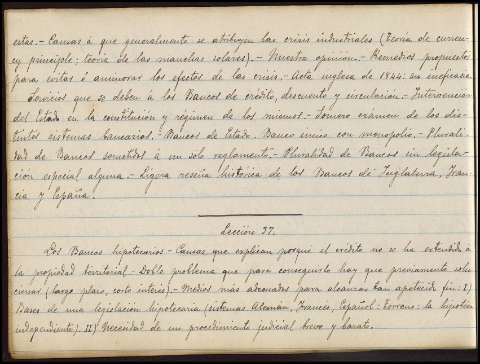 estas.- Causas á que generalmente se atribuyen las crisis industriales (Teoría de curren-
cy principle; teoría de las manchas solares).- Nuestra opinión.- Remedios propuestos
para evitar ó aminorar los efectos de las crisis.- Acta inglesa de 1844: su ineficacia.
Servicios que se deben á los Bancos de crédito, descuento y circulación.- Intervención
del Estado en la constitución y régimen de los mismos.- Somero examen de los dis-
tintos sistemas bancarios.- Bancos de Estado.- Banco único con monopolio.- Plurali-
dad de Bancos sometidos á un solo reglamento.- Pluralidad de Bancos sin legisla-
ción especial alguna.- Ligera reseña histórica de los Bancos de Inglaterra, Fran-
cia y España.
Lección 37.
Los Bancos hipotecarios.- Causas que explican porqué el crédito no se ha extendido á
la propiedad territorial.- Doble problema que para conseguirlo hay que previamente solu-
cionar (largo plazo, corto interés).- Medios más adecuados para alcanzar tan apetecido fin: I)
Bases de una legislación hipotecaria (sistemas Alemán, Francés, Español: Torrens: la hipoteca
independiente). II) Necesidad de un procedimiento judicial breve y barato.